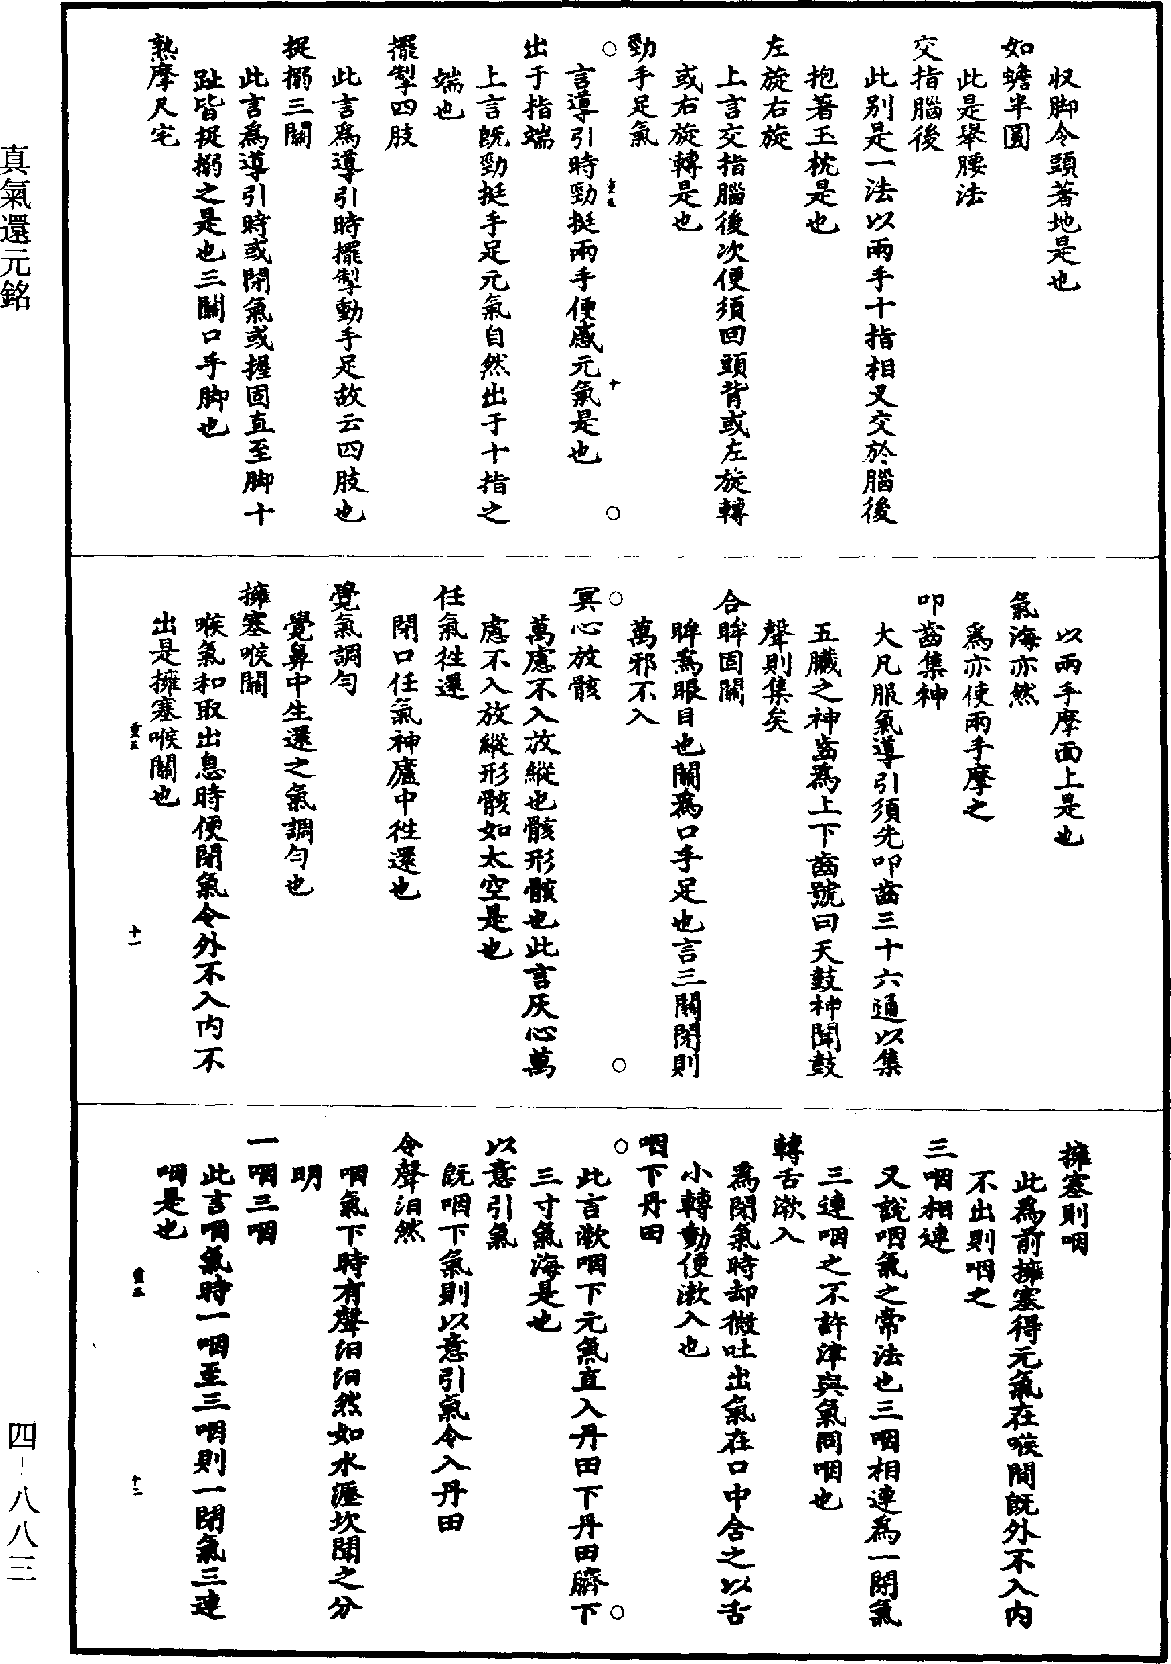 收脚令頭著地是也
如蟾半圓
此是舉腰法
交指腦後
此别是一法以兩手十指相叉交於腦後
抱著玉枕是也
左旋右旋
上言交指腦後次便須回頭背或左旋轉
或右旋轉是也
勁手足氣
言導引時勁挺兩手便感元氣是也
出于指端
上言既勁挺手足元氣自然出于十指之
端也
擺掣四肢
此言為導引時擺掣動手足故云四肢也
捉搦三關
此言為導引時或閉氣或握固直至脚十
趾皆捉搦之是也三關口手脚也
熟摩尺宅
以兩手摩面上是也
氣海亦然
為亦使兩手摩之
叩齒集神
大凡服氣導引須先叩齒三十六通以集
五臟之神齒為上下齒號曰天鼓神聞鼓
聲則集矣
合眸固關
眸為眼目也關為口手足也言三關閉則
萬邪不入
冥心放骸
萬慮不入放縱也骸形骸也此言灰心萬
慮不入放縱形骸如太空是也
任氣徃還
閉口任氣神廬中徃還也
覺氣調勻
覺鼻中生還之氣調勻也
擁塞喉關
喉氣和取出息時便閉氣令外不入内不
出是擁塞喉關也
擁塞則咽
此為前擁塞得元氣在喉間既外不入内
不出則咽之
三咽相連
又說咽氣之常法也三咽相連為一閉氣
三連咽之不許津與氣同咽也
轉舌漱入
為閉氣時却微吐出氣在口中含之以舌
小轉動便漱入也
咽下丹田
此言漱咽下元氣直入丹田下丹田臍下
三寸氣海是也
以意引氣
既咽下氣則以意引氣令入丹田
令聲汩然
咽氣下時有聲汩汩然如水瀝坎聞之分
明
一咽三咽
此言咽氣時一咽至三咽則一閉氣三連
咽是也
重五
十
重五
十一
重五
十二
真氣還元銘
四-八八三